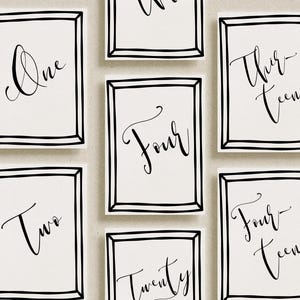 One
Four
Thir-
teen
Two
Twenty
Four-
teen